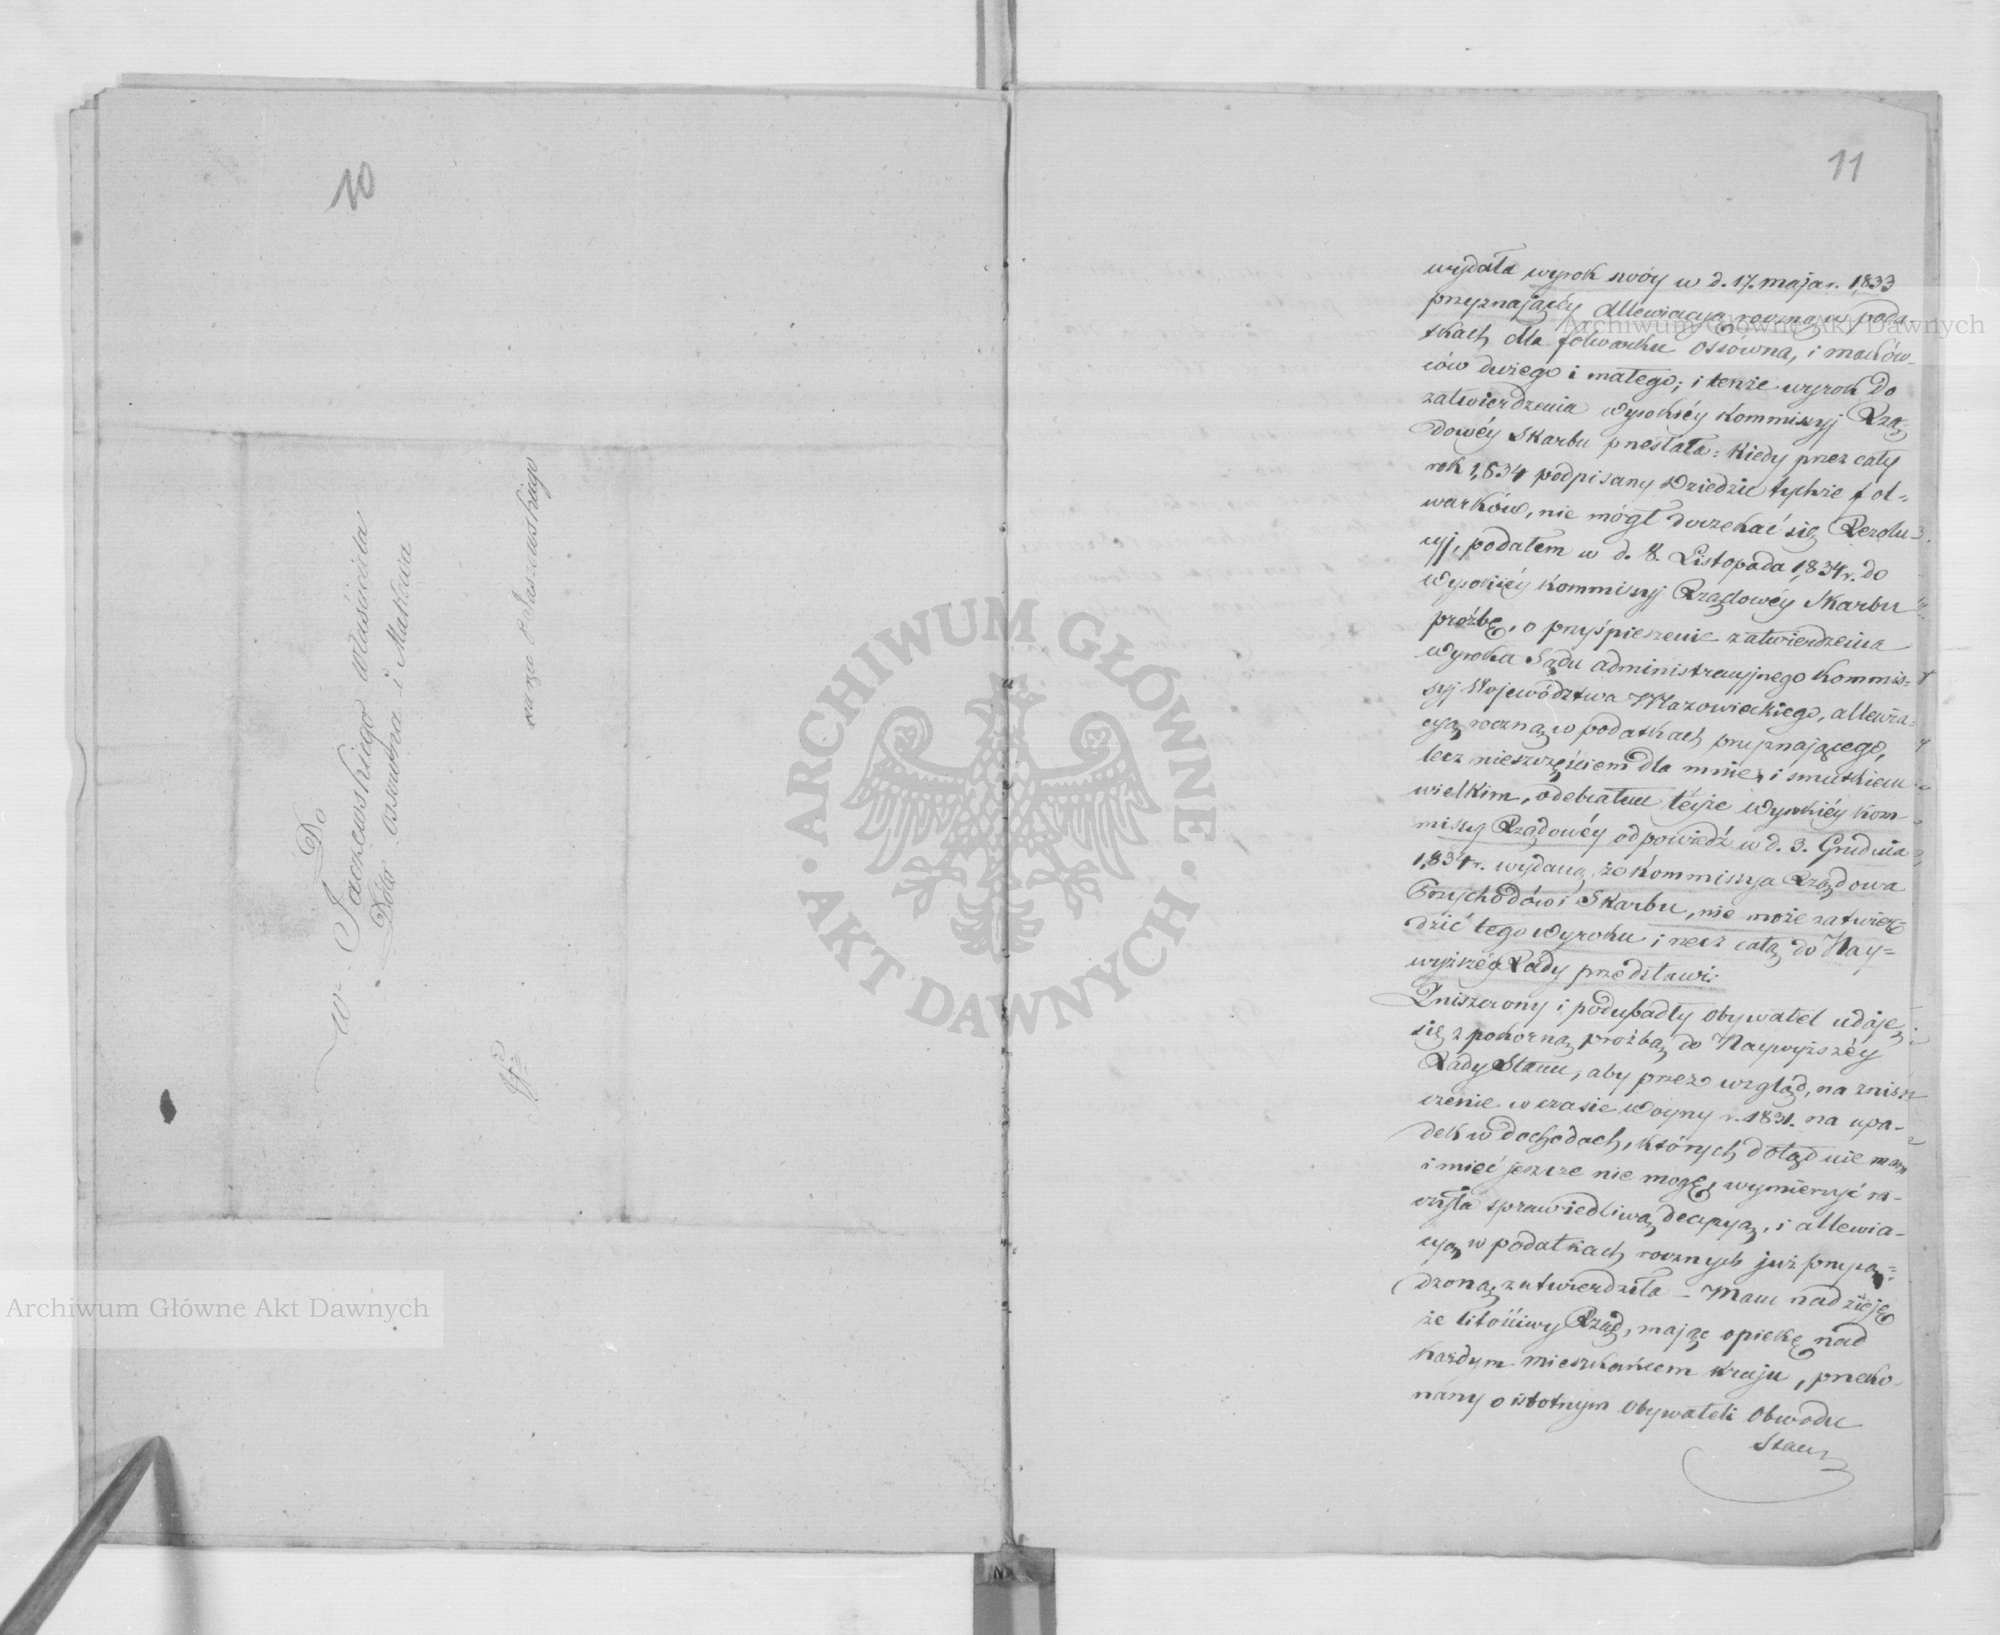 10
Do
W. Jaczewskiego Właściciela
Dóbr Osuwna i Makówca
na ręce P. Jaszewskiego
11
wydała wyrok swóy w d. 17. maja r. 1833
przyznający Allewiacyą roczną w poda-
tkach dla folwarku Osówna, i maków-
ców dużego i małego; i tenże wyrok do
zatwierdzenia Wysokiéy Kommissyj Rzą-
dowéy Skarbu przesłała: Kiedy przez cały
rok 1834 podpisany Dziedzic tychże fol-
warków, nie mógł doczekać się Rezolu-
cyj, podałem w d. 8. Listopada 1834 r. do
Wysokiéy Kommissyj Rządowéy Skarbu
próźbę, o przyśpieszenie zatwierdzenia
Wyroku Sądu administracyjnego Kommis-
syj Województwa Mazowieckiego, allewia-
cyą roczną w podatkach przyznającego,
lecz nieszczęściem dla mnie, i smutkiem
wielkim, odebrałem téyże Wysokiéy Kom-
missyj Rządowéy odpowiedź w d. 3. Grudnia
1834 r. wydaną, że Kommissya Rządowa
Przychodów i Skarbu, nie może zatwier-
dzić tego Wyroku i rzecz całą do Nay-
wyższéy Rady przedstawi.
Zniszczony i podupadły obywatel udaję
się z pokorną proźbą do Naywyższéy
Rady Stanu, aby przez wzgląd, na znisz-
czenie w czasie Woyny r. 1831. na upa-
dek w dochodach, których dotąd nie mam
i mieć jeszcze nie mogę, wymierzyć ra-
czyła sprawiedliwą decyzyą, i allewia-
cyą w podatkach rocznych już przysą-
dzoną zatwierdziła – Mam nadzieję
że litościwy Rząd, mając opiekę nad
każdym mieszkańcem kraju, przeko-
nany o istotnym Obywateli Obwodu
Stanu
Archiwum Główne Akt Dawnych
Archiwum Główne Akt Dawnych
ARCHIWUM GŁÓWNE
AKT DAWNYCH